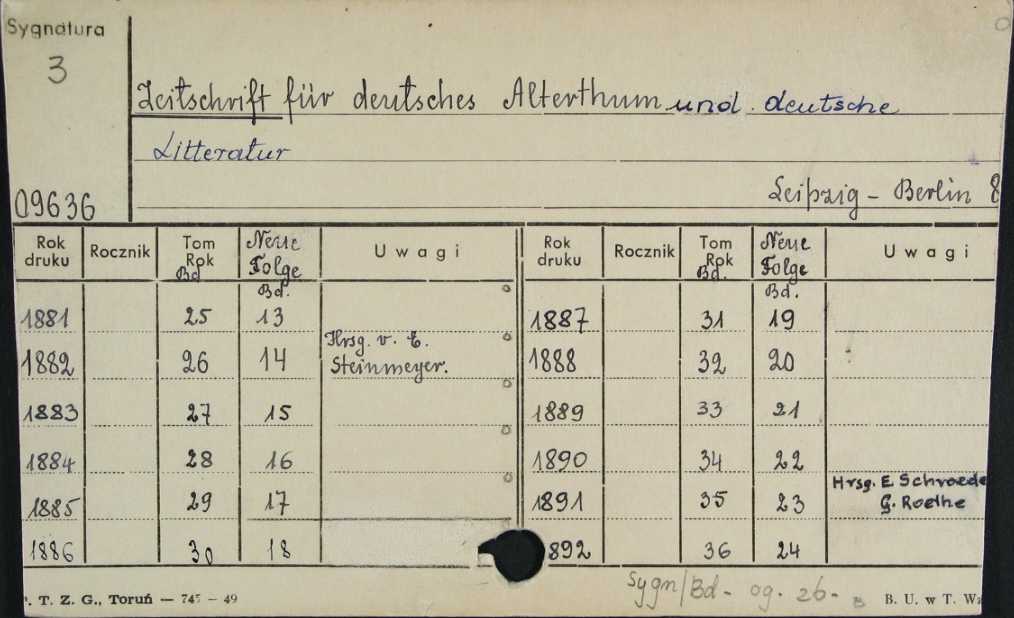 Sygnatura
3
Zeitschrift für deutsches Alterthum und deutsche
Litteratur
09636
Leipzig - Berlin 8
Rok druku Rocznik Tom Rok Bd Neue Folge Bd. Uwagi Rok druku Rocznik Tom Rok Bd. Neue Folge Bd. Uwagi
1881 25 13 1887 31 19
1882 26 14 Hrsg. v. E. Steinmeyer. 1888 32 20
1883 27 15 1889 33 21
1884 28 16 1890 34 22
1885 29 17 1891 35 23 Hrsg. E. Schroede G. Roethe
1886 30 18 892 36 24
Sygn/Bd. - og. 26 -
. T. Z. G., Toruń — 745 — 49
B. U. w T. W